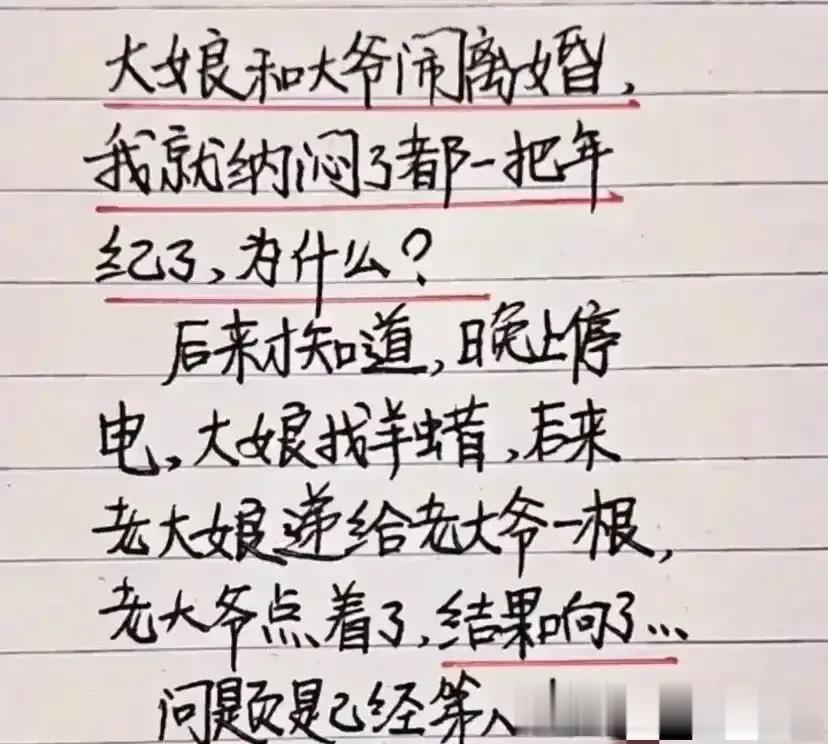 大娘和大爷闹离婚，
我就纳闷了都一把年
纪了，为什么？
后来才知道，晚上停
电，大娘找羊蜡，后来
老大娘递给老大爷一根，
老大爷点着了，结果响了...
问题是已经第八